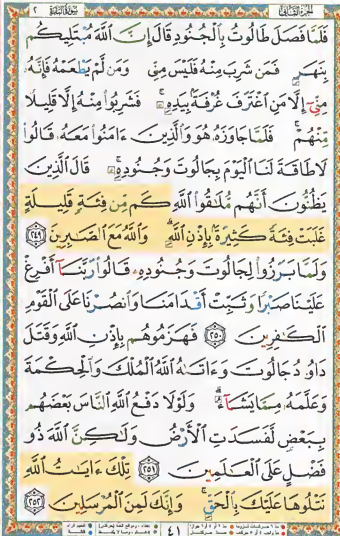 الجزء الثاني
سورة البقرة ٢
فَلَمَّا فَصَلَ طَالُوتُ بِالْجُنُودِ قَالَ إِنَّ اللَّهَ مُبْتَلِيكُم
بِنَهَرٍ فَمَن شَرِبَ مِنْهُ فَلَيْسَ مِنِّي وَمَن لَّمْ يَطْعَمْهُ فَإِنَّهُ
مِنِّي إِلَّا مَنِ اغْتَرَفَ غُرْفَةً بِيَدِهِ ۚ فَشَرِبُوا مِنْهُ إِلَّا قَلِيلًا
مِّنْهُمْ ۚ فَلَمَّا جَاوَزَهُ هُوَ وَالَّذِينَ ءَامَنُوا مَعَهُ قَالُوا
لَا طَاقَةَ لَنَا الْيَوْمَ بِجَالُوتَ وَجُنُودِهِ ۚ قَالَ الَّذِينَ
يَظُنُّونَ أَنَّهُم مُّلَاقُوا اللَّهِ كَم مِّن فِئَةٍ قَلِيلَةٍ
غَلَبَتْ فِئَةً كَثِيرَةً بِإِذْنِ اللَّهِ ۗ وَاللَّهُ مَعَ الصَّابِرِينَ ٢٤٩
وَلَمَّا بَرَزُوا لِجَالُوتَ وَجُنُودِهِ قَالُوا رَبَّنَا أَفْرِغْ
عَلَيْنَا صَبْرًا وَثَبِّتْ أَقْدَامَنَا وَانصُرْنَا عَلَى الْقَوْمِ
الْكَافِرِينَ ٢٥٠ فَهَزَمُوهُم بِإِذْنِ اللَّهِ وَقَتَلَ
دَاوُدُ جَالُوتَ وَءَاتَاهُ اللَّهُ الْمُلْكَ وَالْحِكْمَةَ
وَعَلَّمَهُ مِمَّا يَشَاءُ ۗ وَلَوْلَا دَفْعُ اللَّهِ النَّاسَ بَعْضَهُم
بِبَعْضٍ لَّفَسَدَتِ الْأَرْضُ وَلَٰكِنَّ اللَّهَ ذُو
فَضْلٍ عَلَى الْعَالَمِينَ ٢٥١ تِلْكَ ءَايَاتُ اللَّهِ
نَتْلُوهَا عَلَيْكَ بِالْحَقِّ ۚ وَإِنَّكَ لَمِنَ الْمُرْسَلِينَ ٢٥٢
٤١